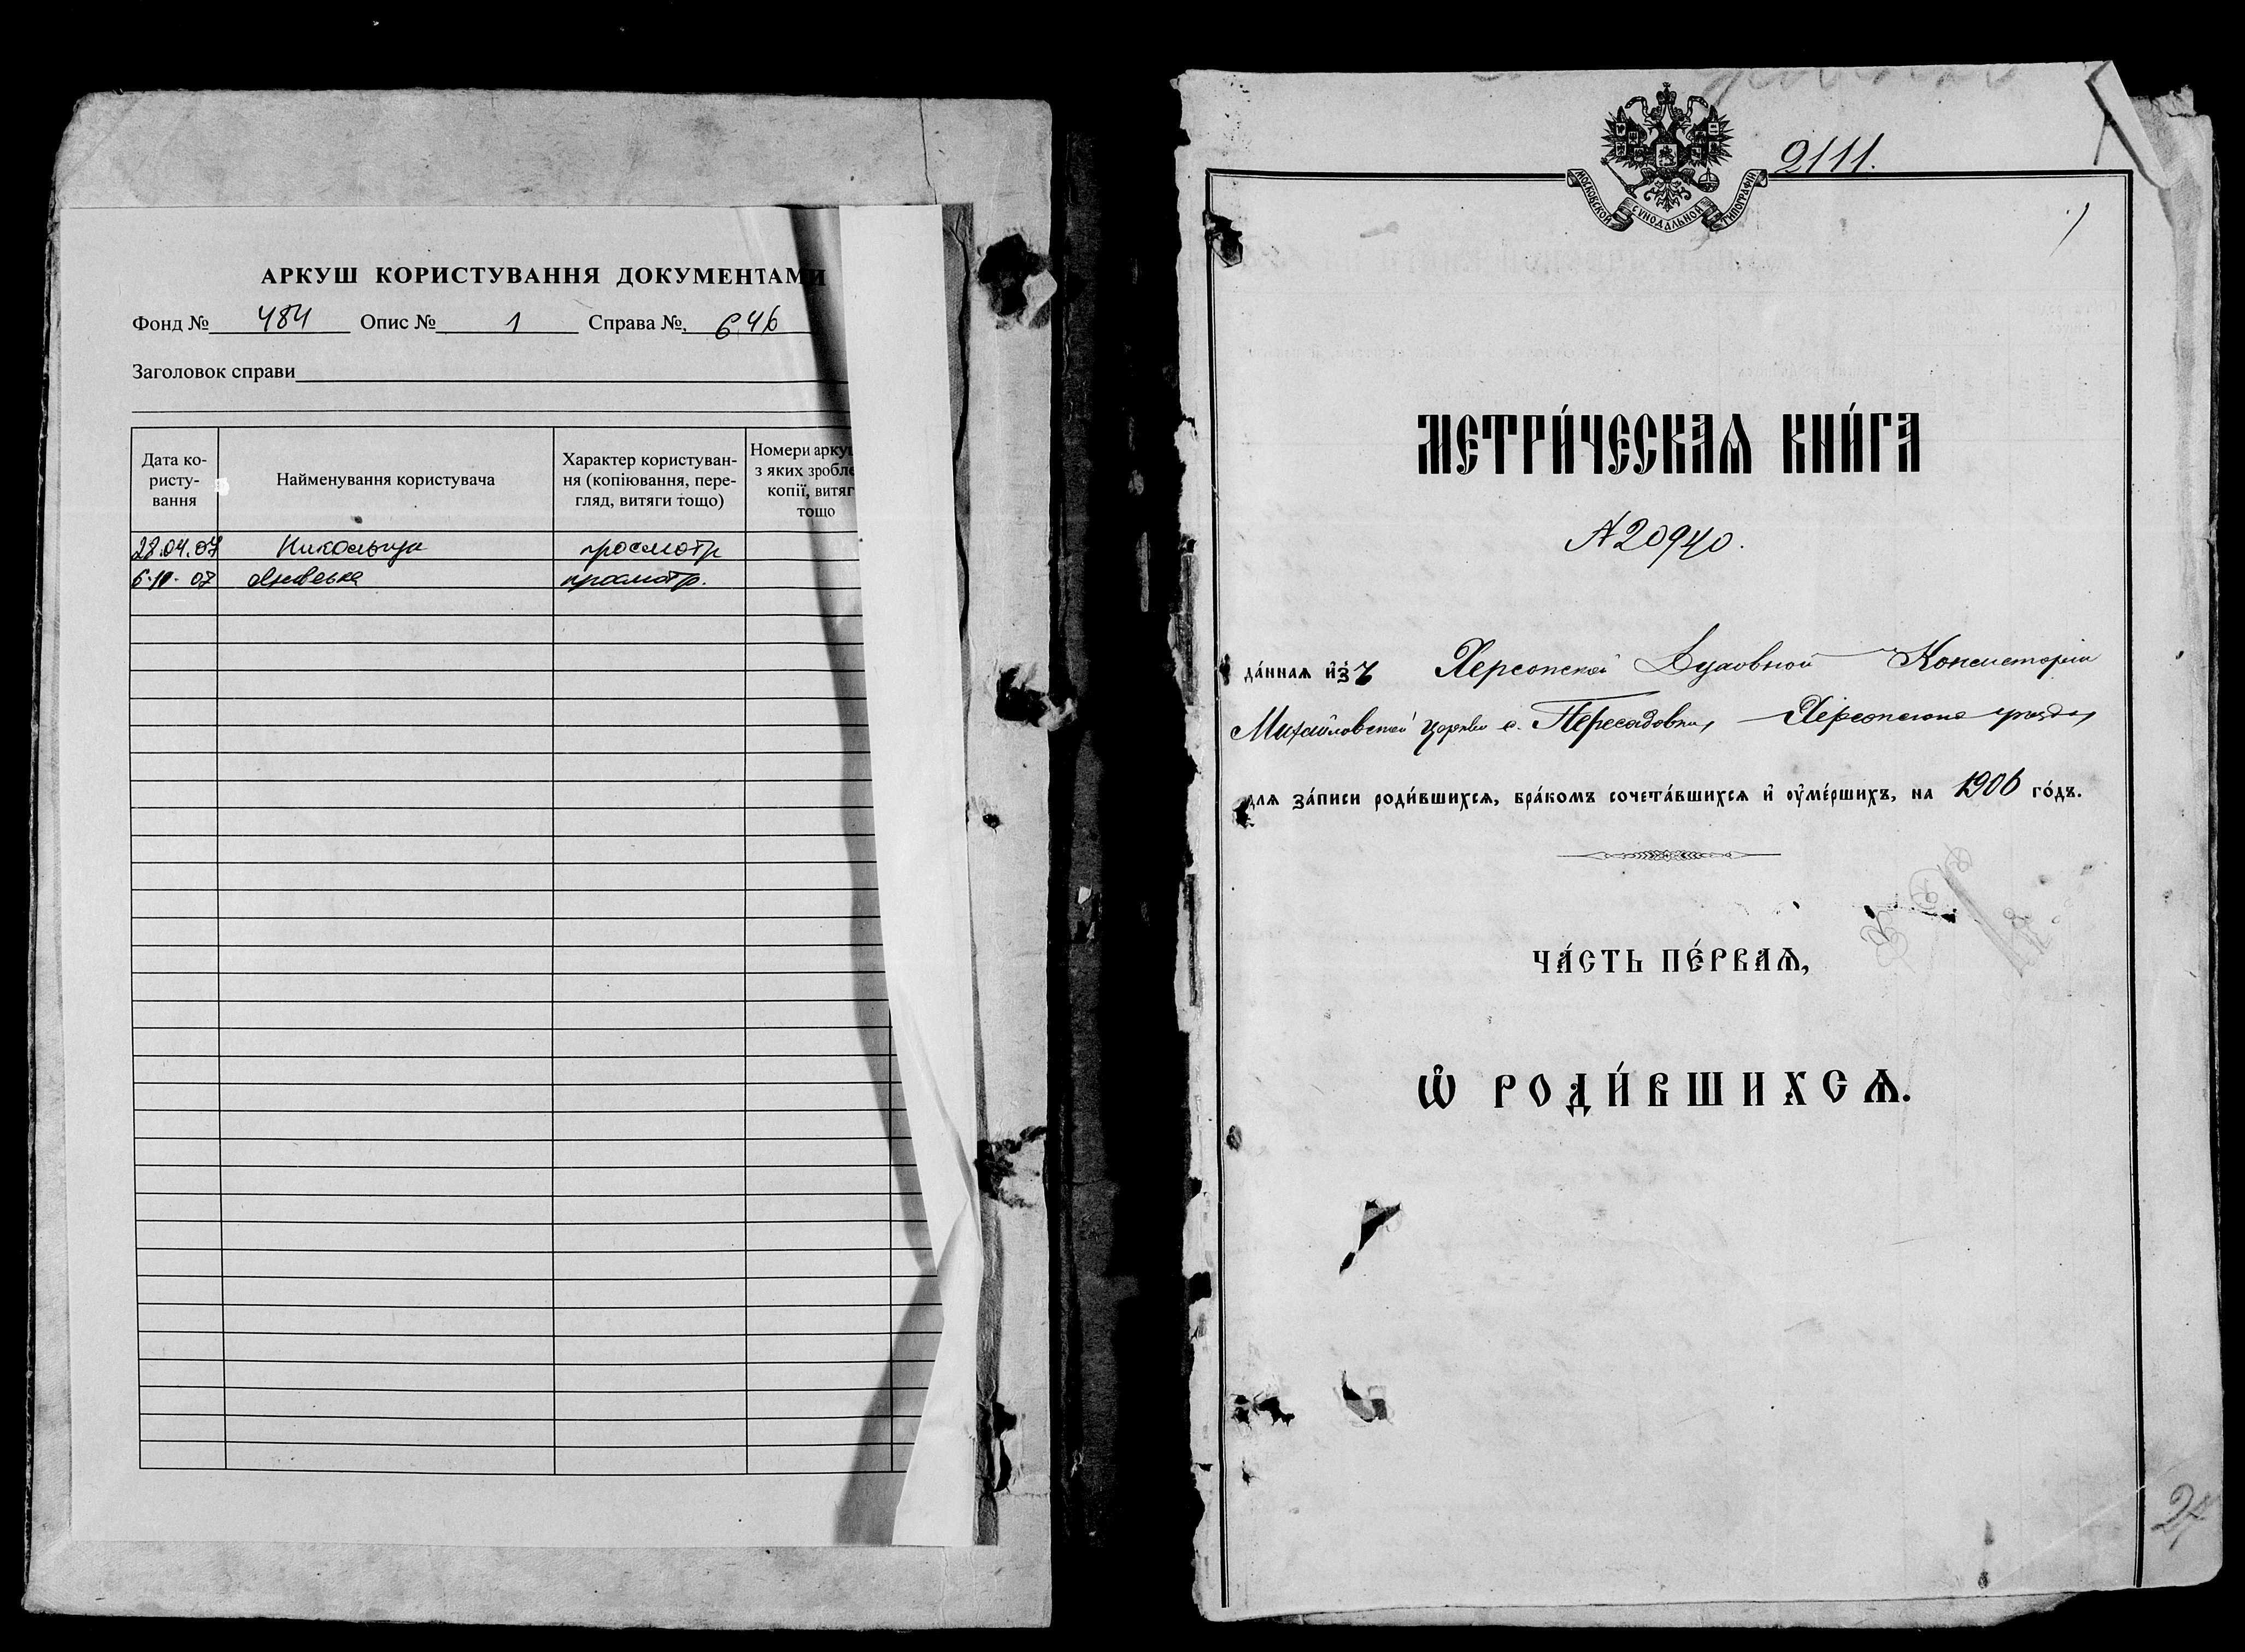 АРКУШ КОРИСТУВАННЯ ДОКУМЕНТАМИ
Фонд № 484 Опис № 1 Справа № 646
Заголовок справи
Дата ко-
ристу-
вання
Найменування користувача
Характер користуван-
ня (копіювання, пере-
гляд, витяги тощо)
Номери арку
з яких зробле
копії, витяг
тощо
28.04.07 просмотр
6.10.07 просмотр.
2111.
МОСКОВСКОЙ СѴНОДАЛЬНОЙ ТИПОГРАФІИ
МЕТРИ́ЧЕСКАѦ КНИ́ГА
№ 20940.
да́ннаѧ и҆зъ Херсонской Духовной Консисторіи
Михайловской церкви с. Пересадовки, Херсонскаго уѣзда,
для за́писи роди́вшихсѧ, бра́комъ сочета́вшихсѧ и҆ оу҆ме́ршихъ, на 1906 го́дъ.
ЧА́СТЬ ПЕ́РВАѦ,
Ѡ҆ РОДИ́ВШИХСѦ.